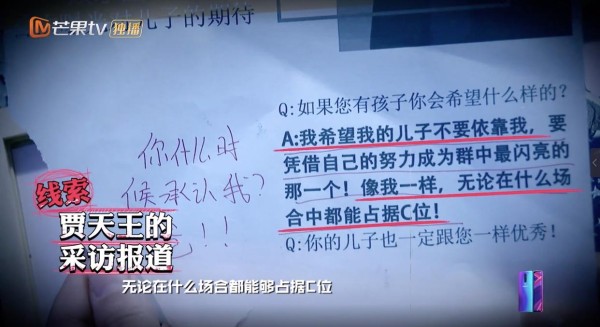 芒果tv 独播
儿子的期待
Q:如果您有孩子你会希望什么样的?
A:我希望我的儿子不要依靠我，要
凭借自己的努力成为群中最闪亮的
那一个！像我一样，无论在什么场
合中都能占据C位！
Q:你的儿子也一定跟您一样优秀！
你什么时
候承认我?
!!
线索
贾天王的
采访报道
无论在什么场合都能够占据C位